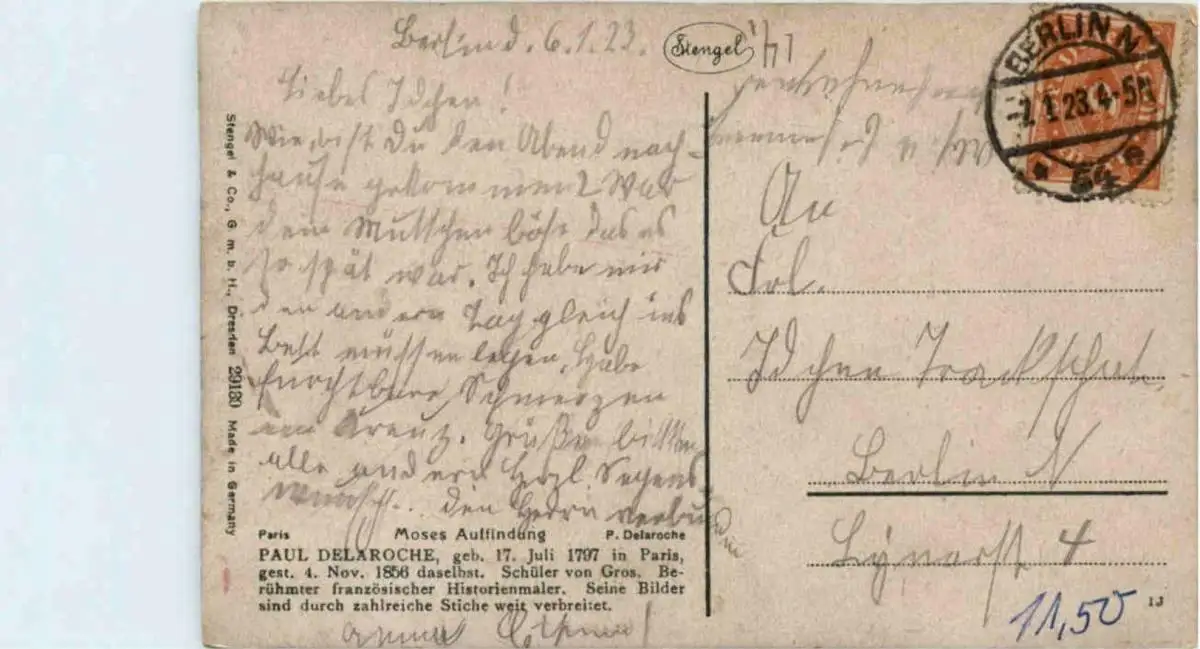 Berlin d. 6.1.23.
Stengel
Liebes Idchen!
Wie bist Du den Abend nach-
hause gekommen? War
dein Muttchen böse das es
so spät war. Ich habe mir
den andern Tag gleich ins
Bett müssen legen. Habe
furchtbare Schmerzen
im Kreuz. Grüße bitte
alle andern Herzl. Segens
wunsch.. den Herrn
Paris Moses Auffindung P. Delaroche
PAUL DELAROCHE, geb. 17. Juli 1797 in Paris,
gest. 4. Nov. 1856 daselbst. Schüler von Gros. Be-
rühmter französischer Historienmaler. Seine Bilder
sind durch zahlreiche Stiche weit verbreitet.
Stengel & Co., G. m. b. H., Dresden 29180 Made in Germany
BERLIN N
7.1.23.4-5N
54
An
Frl.
Idchen
Berlin N
Lynarst 4
11,50
IJ